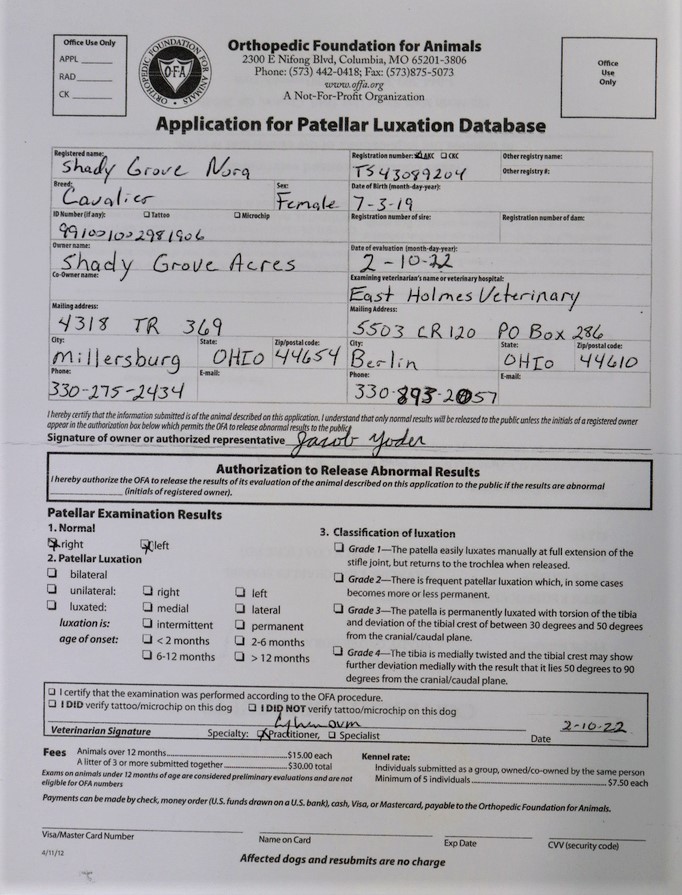 Office Use Only
APPL
RAD
CK
ORTHOPEDIC FOUNDATION FOR ANIMALS
OFA
Orthopedic Foundation for Animals
2300 E Nifong Blvd, Columbia, MO 65201-3806
Phone: (573) 442-0418; Fax: (573)875-5073
www.offa.org
A Not-For-Profit Organization
Office
Use
Only
Application for Patellar Luxation Database
Registered name: Shady Grove Nora
Registration number: AKC CKC TS43089204
Other registry name:
Other registry #:
Breed: Cavalier
Sex: Female
Date of Birth (month-day-year): 7-3-19
ID Number (if any): Tattoo Microchip
Registration number of sire:
Registration number of dam:
Owner name: Shady Grove Acres
Date of evaluation (month-day-year): 2-10-22
Co-Owner name:
Examining veterinarian's name or veterinary hospital: East Holmes Veterinary
Mailing address: 4318 TR 369
Mailing Address: 5503 CR 120 PO Box 286
City: Millersburg State: OHIO Zip/postal code: 44654
City: Berlin State: OHIO Zip/postal code: 44610
Phone: 330-275-2434 E-mail:
Phone: 330-893-2057 E-mail:
I hereby certify that the information submitted is of the animal described on this application. I understand that only normal results will be released to the public unless the initials of a registered owner
appear in the authorization box below which permits the OFA to release abnormal results to the public
Signature of owner or authorized representative Jacob Yoder
Authorization to Release Abnormal Results
I hereby authorize the OFA to release the results of its evaluation of the animal described on this application to the public if the results are abnormal
(initials of registered owner).
Patellar Examination Results
1. Normal
right left
2. Patellar Luxation
bilateral
unilateral: right left
luxated: medial lateral
luxation is: intermittent permanent
age of onset: < 2 months 2-6 months
6-12 months > 12 months
3. Classification of luxation
Grade 1—The patella easily luxates manually at full extension of the
stifle joint, but returns to the trochlea when released.
Grade 2—There is frequent patellar luxation which, in some cases
becomes more or less permanent.
Grade 3—The patella is permanently luxated with torsion of the tibia
and deviation of the tibial crest of between 30 degrees and 50 degrees
from the cranial/caudal plane.
Grade 4—The tibia is medially twisted and the tibial crest may show
further deviation medially with the result that it lies 50 degrees to 90
degrees from the cranial/caudal plane.
I certify that the examination was performed according to the OFA procedure.
I DID verify tattoo/microchip on this dog I DID NOT verify tattoo/microchip on this dog
2-10-22
Veterinarian Signature Specialty: Practitioner, Specialist Date
Fees Animals over 12 months $15.00 each
A litter of 3 or more submitted together $30.00 total
Exams on animals under 12 months of age are considered preliminary evaluations and are not
eligible for OFA numbers
Kennel rate:
Individuals submitted as a group, owned/co-owned by the same person
Minimum of 5 individuals $7.50 each
Payments can be made by check, money order (U.S. funds drawn on a U.S. bank), cash, Visa, or Mastercard, payable to the Orthopedic Foundation for Animals.
Visa/Master Card Number Name on Card Exp Date CVV (security code)
4/11/12
Affected dogs and resubmits are no charge